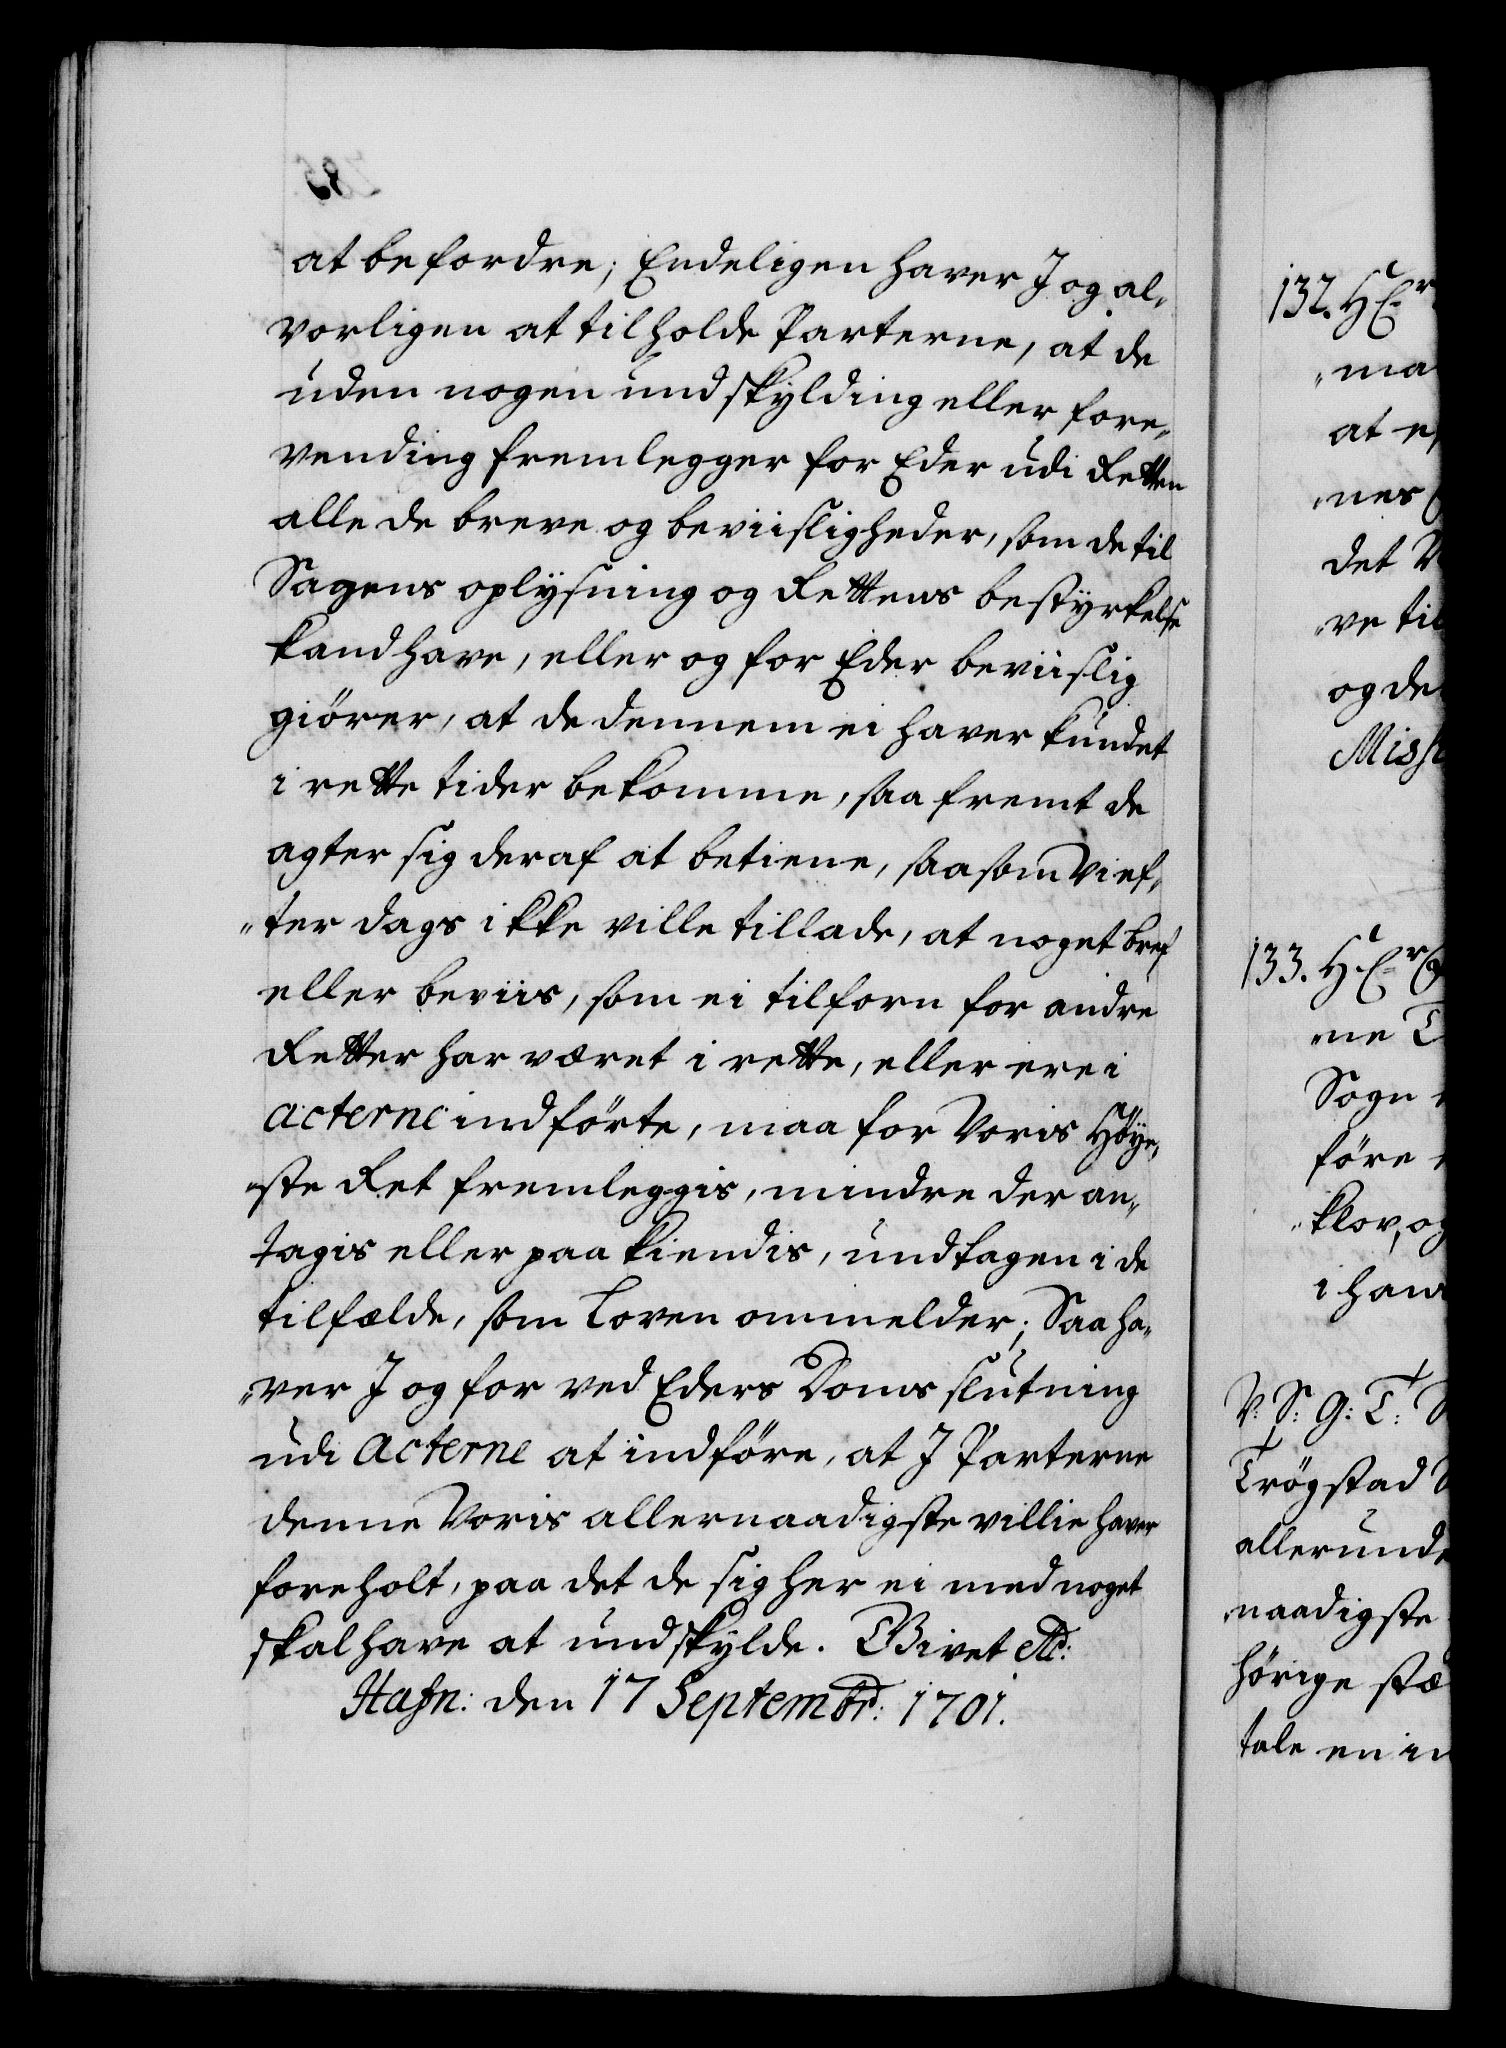 at befordre; Endeligen haver J og al„
vorligen at tilholde Parterne, at de
uden nogen undskylding eller fore„
vending fremlegger for Eder udi Retten
alle de breve og beviisligheder, som de til
Sagens oplysning og Rettens bestyrkelse
kand have, eller og for Eder beviislig
giörer, at de dennem ei haver kundet
i rette tider bekomme, saa fremt de
agter sig deraf at betiene, saasom Vi ef„
„ter dags ikke ville tillade, at noget bref
eller beviis, som ei tilforn for andre
Retter har været i rette, eller ere i
acterne indförte, maa for Voris Höye„
„ste Ret fremleggis, mindre der an„
tagis eller paa kiendis, undtagen i de
tilfælde, som Loven ommelder; Saa ha„
„ver J og for ved Eders Doms slutning
udi acterne at indföre, at J Parterne
denne Voris allernaadigste villie haver
foreholt, paa det de sig her ei med noget
skal have at undskylde. Givet etc:
Hafn: den 17 Septembr: 1701.
132. HEr
„ma
at e
„nes
det
„ve til
og de
Miss
133. HEr
„ne
Sogn
före
„klov, og
i han
V: S: G: T:
Trögstad
allerunde
„naadigste
hörige stæ
tale en in